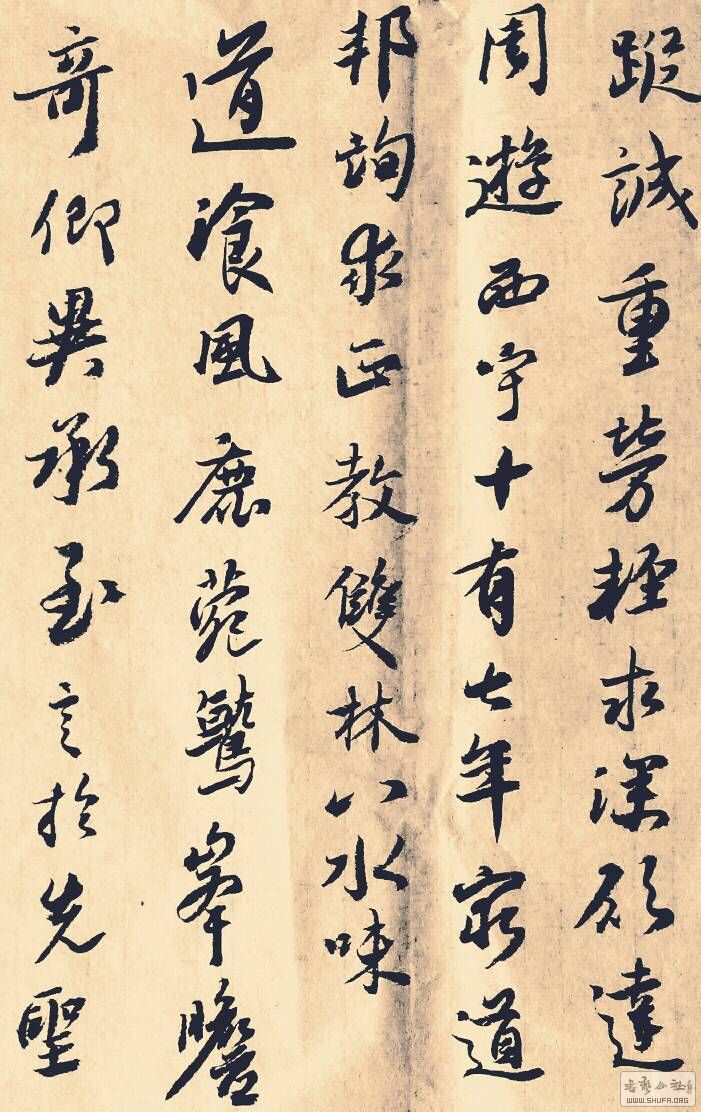 蹤誠重勞輕求深願達
周遊西宇十有七年窮道
邦詢求正教雙林八水味
道飡風鹿菀鷲峯瞻
奇仰異承至言於先聖
书艺公社
WWW.SHUFA.ORG